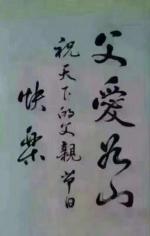 父愛如山
祝天下的父親節日
快樂